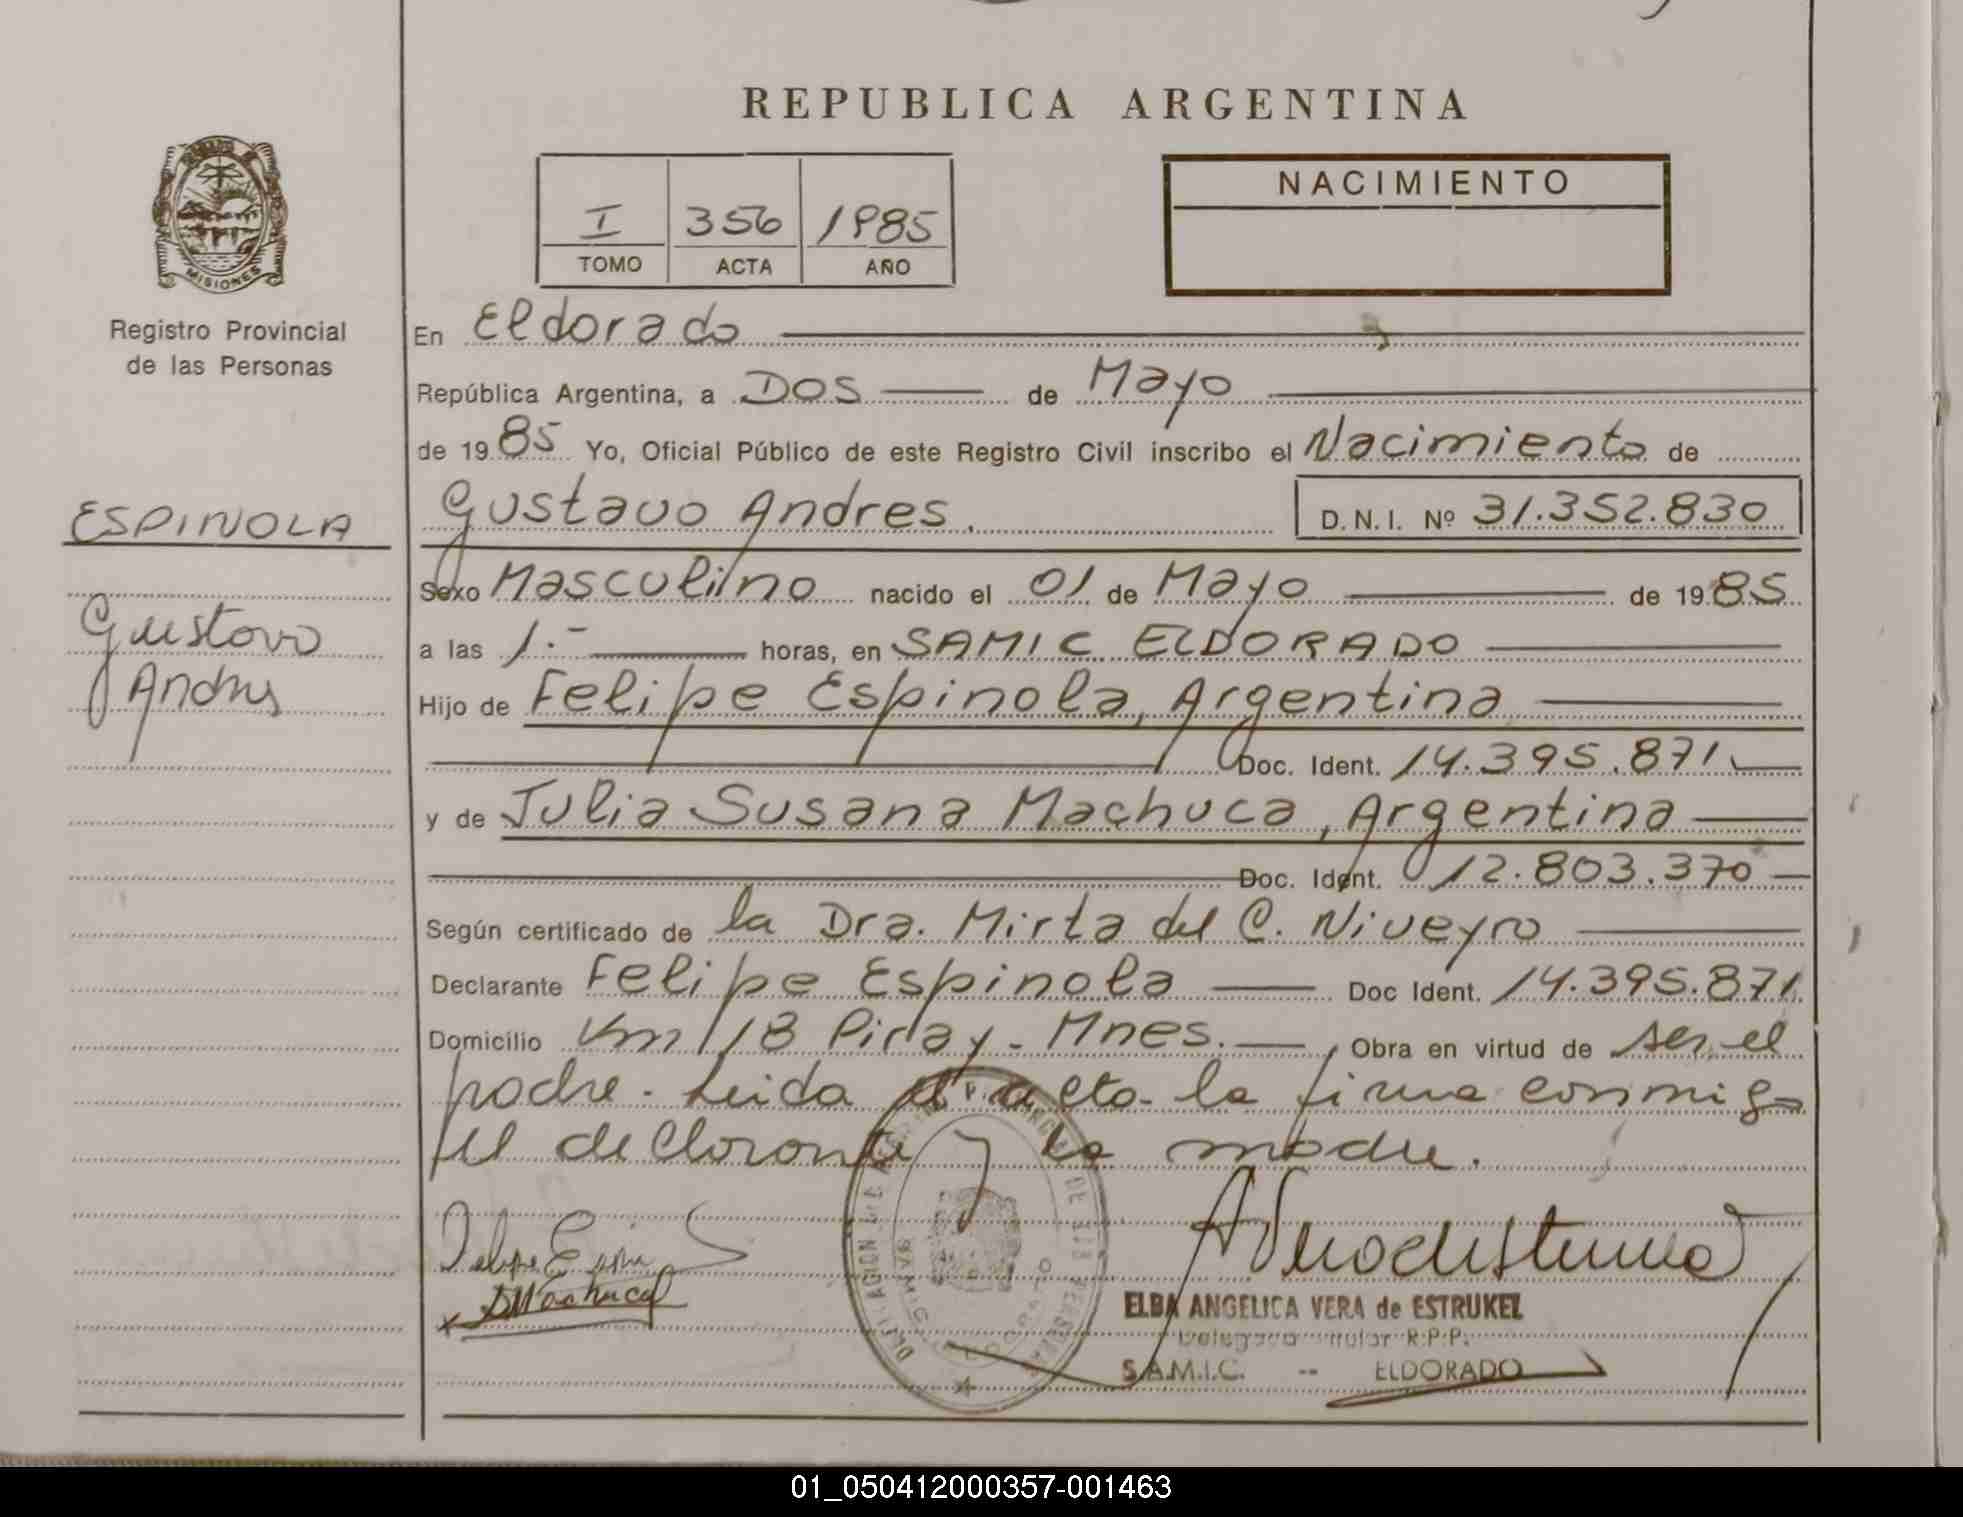 REPUBLICA ARGENTINA
MISIONES
Registro Provincial
de las Personas
I 356 1985
TOMO ACTA AÑO
NACIMIENTO
En Eldorado
República Argentina, a DOS de Mayo
de 1985 Yo, Oficial Público de este Registro Civil inscribo el Nacimiento de
ESPINOLA
Gustavo
Andres
Gustavo Andres. D.N.I. Nº 31.352.830
Sexo Masculino nacido el 01 de Mayo de 1985
a las 1.- horas, en SAMIC ELDORADO
Hijo de Felipe Espinola, Argentina
Doc. Ident. 14.395.871
y de Julia Susana Machuca, Argentina
Doc. Ident. 12.803.370
Según certificado de la Dra. Mirta del C. Niveyro
Declarante Felipe Espinola Doc Ident. 14.395.871
Domicilio Km 18 Piray - Mnes. Obra en virtud de ser el
padre. Leida el acta la firma conmigo
el declarante y la madre.
Felipe Espin
Machuca
ELBA ANGELICA VERA de ESTRUKEL
Delegada Titular R.P.P.
S.A.M.I.C. -- ELDORADO
01_050412000357-001463